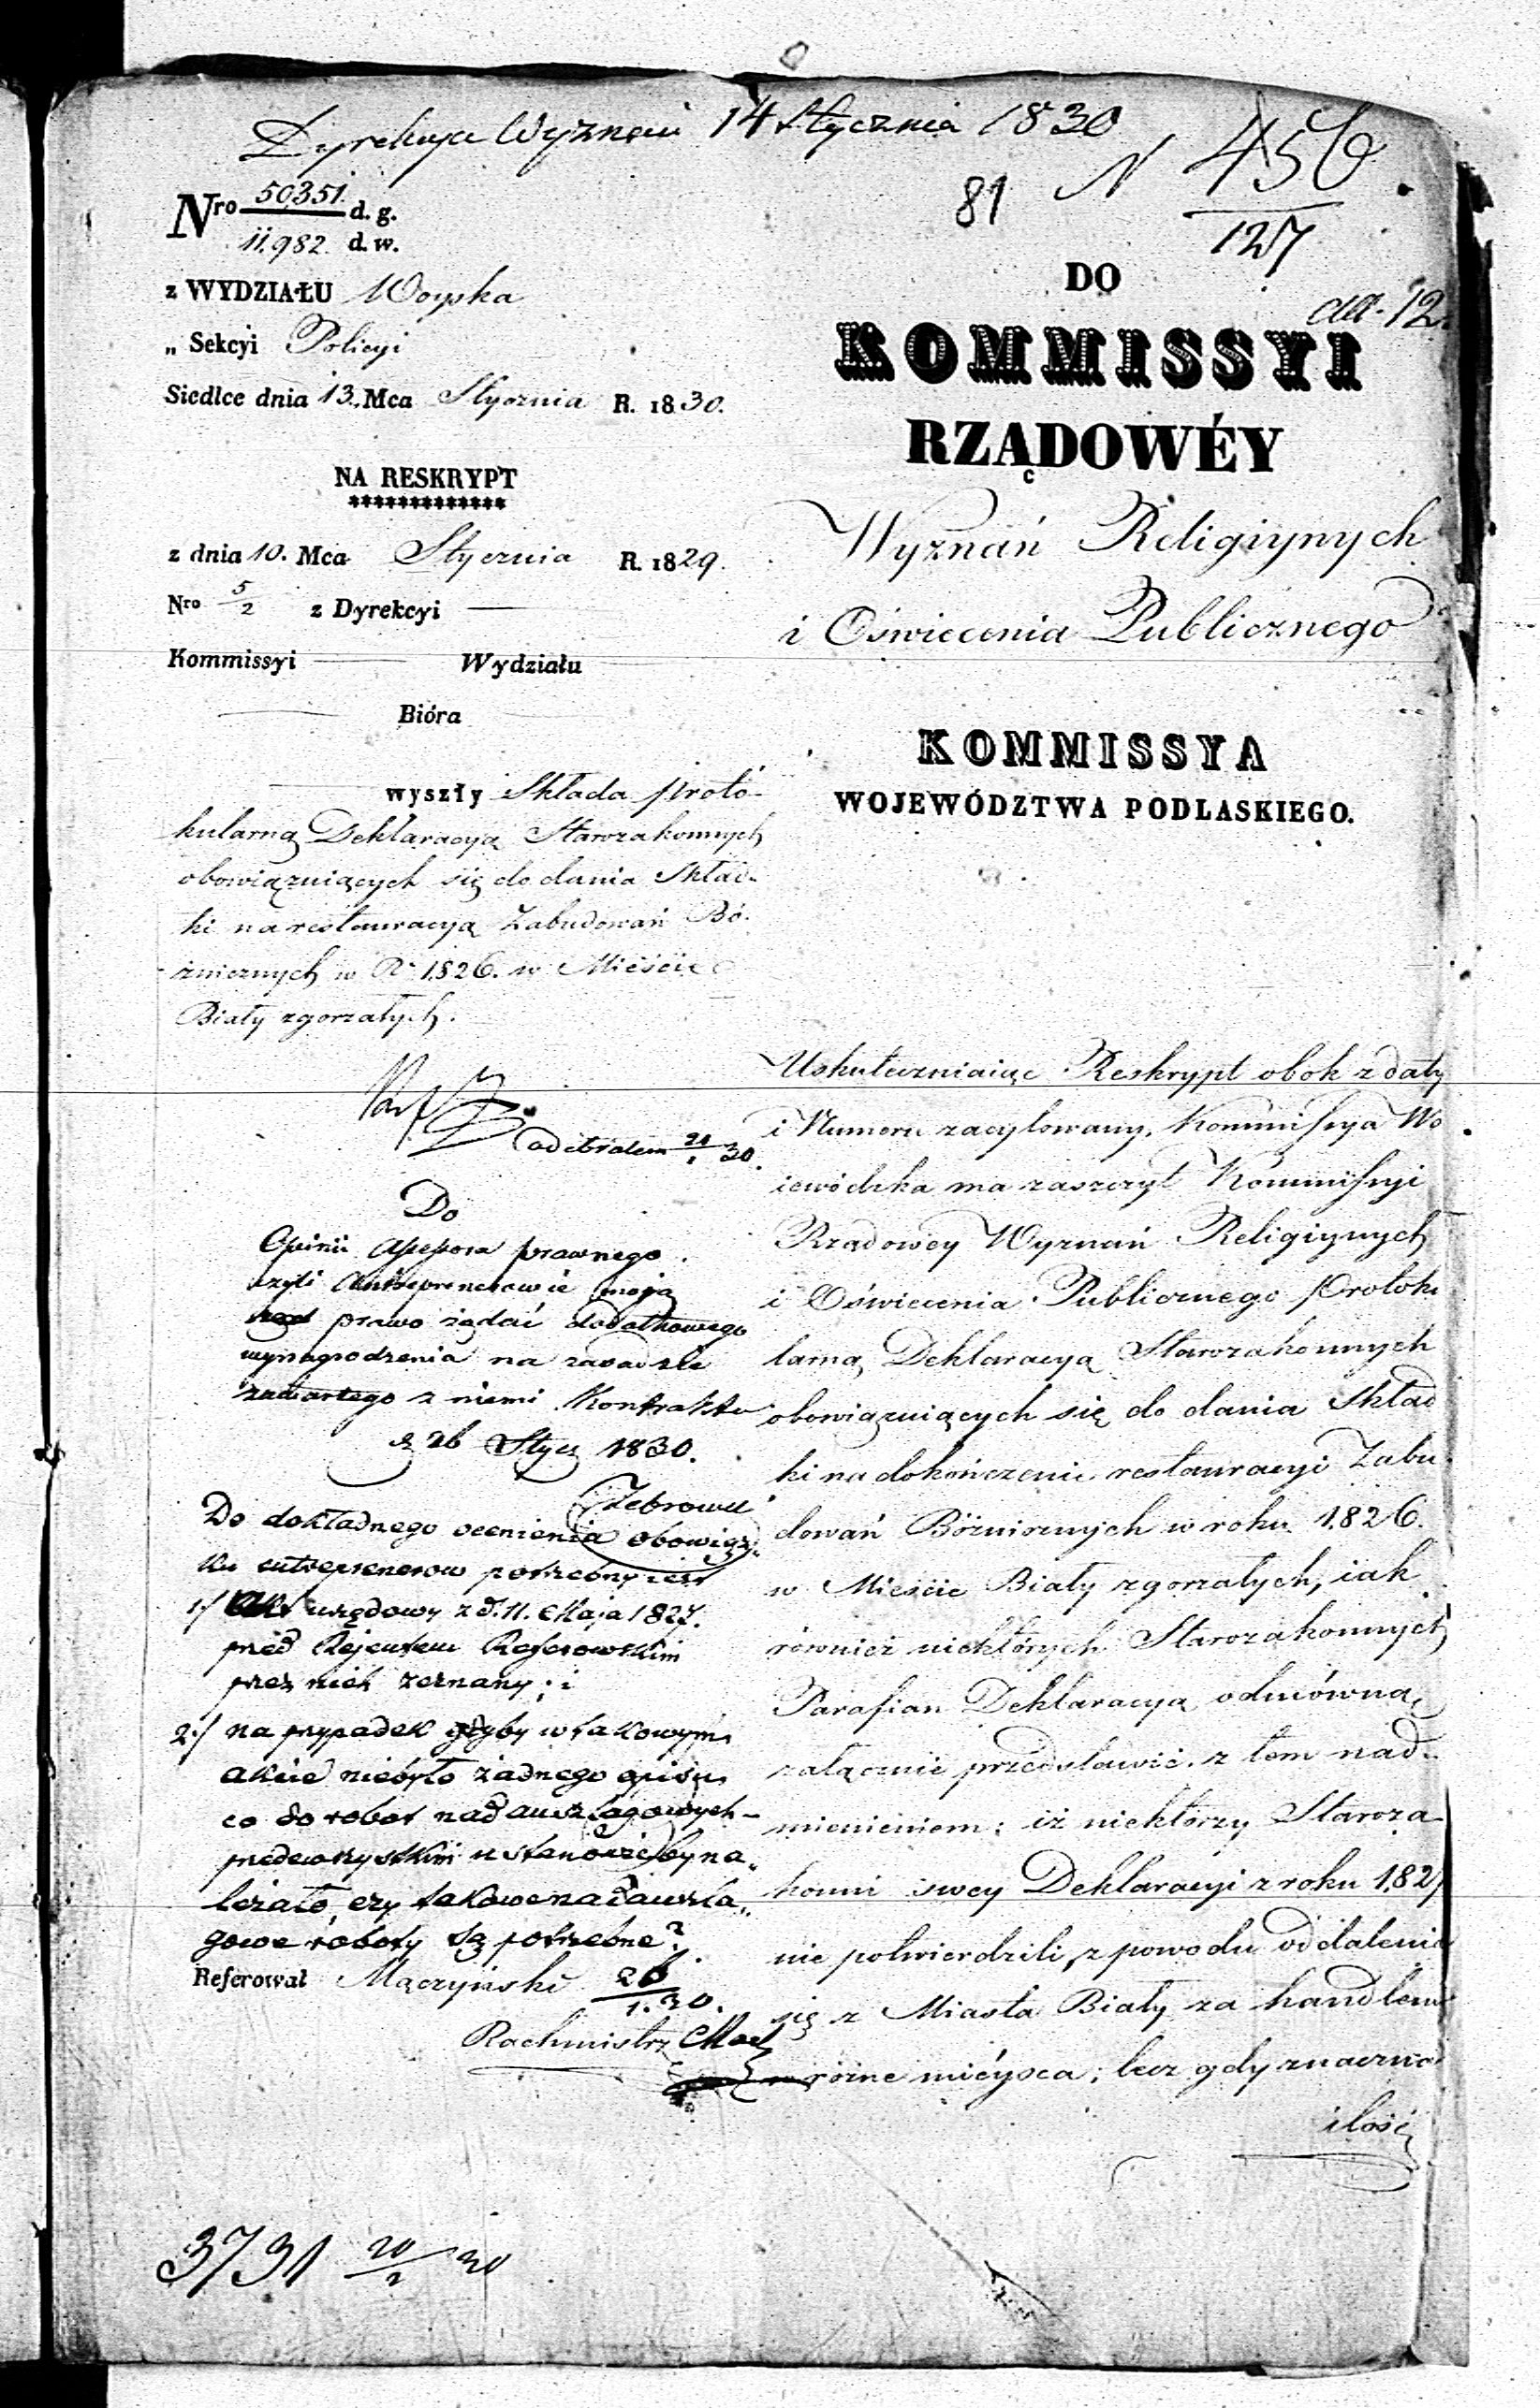 Dyrekcya Wyznań 14 Stycznia 1830
81 N 456
127
Nro 50351. d. g.
11.982. d. w.
z WYDZIAŁU Woyska
„ Sekcyi Policyi
Siedlce dnia 13. Mca Stycznia R. 1830.
NA RESKRYPT
z dnia 10. Mca Stycznia R. 1829.
Nro 5/2 z Dyrekcyi
Kommissyi Wydziału
Bióra
wyszły Składa proto-
kularną Deklaracyą Starozakonnych
obowiązuiących się do dania Skład-
ki na restauracyą Zabudowań Bó-
żnicznych w R. 1826. w Mieście
Biały zgorzałych.
odebrałem 20/1 30.
Do
Opinii Assessora prawnego.
czyli Antreprenerowie mają
prawo żądać dodatkowego
wynagrodzenia na zasadzie
zawartego z niemi Kontraktu
d. 26 Stycz 1830.
Do dokładnego ocenienia obowiąz-
ku entreprenerow potrzebny iest
1./ Akt urzędowy z d. 11. Maja 1827.
przed Rejentem
przez nich zeznany; i
2./ na przypadek gdyby w takowym
akcie niebyło żadnego opisu
co do robot nadanszlagowych-
przedewszystkim ustanowić by na-
leżało, czy takowe nadanszla-
gowe roboty są potrzebne?
Referował Mączyński 26
1. 30.
Rachmistrz
3731 20/2 30
DO
KOMMISSYI
RZĄDOWÉY
Wyznań Religiynych
i Oświecenia Publicznego
KOMMISSYA
WOJEWÓDZTWA PODLASKIEGO.
Uskuteczniaiąc Reskrypt obok z daty
i Numeru zacytowany, Kommissya Wo
iewódzka ma zaszczyt Kommissyi
Rządowey Wyznań Religiynych
i Oświecenia Publicznego Protoku
larną Deklaracyą Starozakonnych
obowiązuiących się do dania Skład
ki na dokończenie restauracyi Zabu
dowań Bóżnicznych w roku 1826.
w Mieście Biały zgorzałych, iak
również niektórych Starozakonnych
Parafian Deklaracyą odmówną
załącznie przedstawić z tem nad-
mienieniem: iż niektórzy Staroza-
konni swey Deklaracyi z roku 1827
nie potwierdzili z powodu oddalenia
się z Miasta Biały za handlem
w różne mieysca; lecz gdy znaczna
ilość